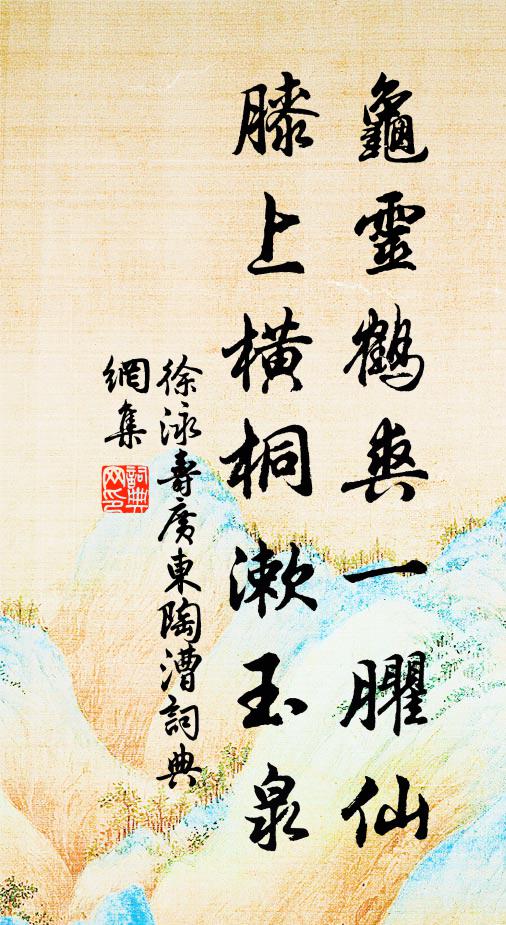 龜靈鶴爽一臞仙
膝上橫桐漱玉泉
徐泳壽廣東陶漕詞典
網集
詞典網印